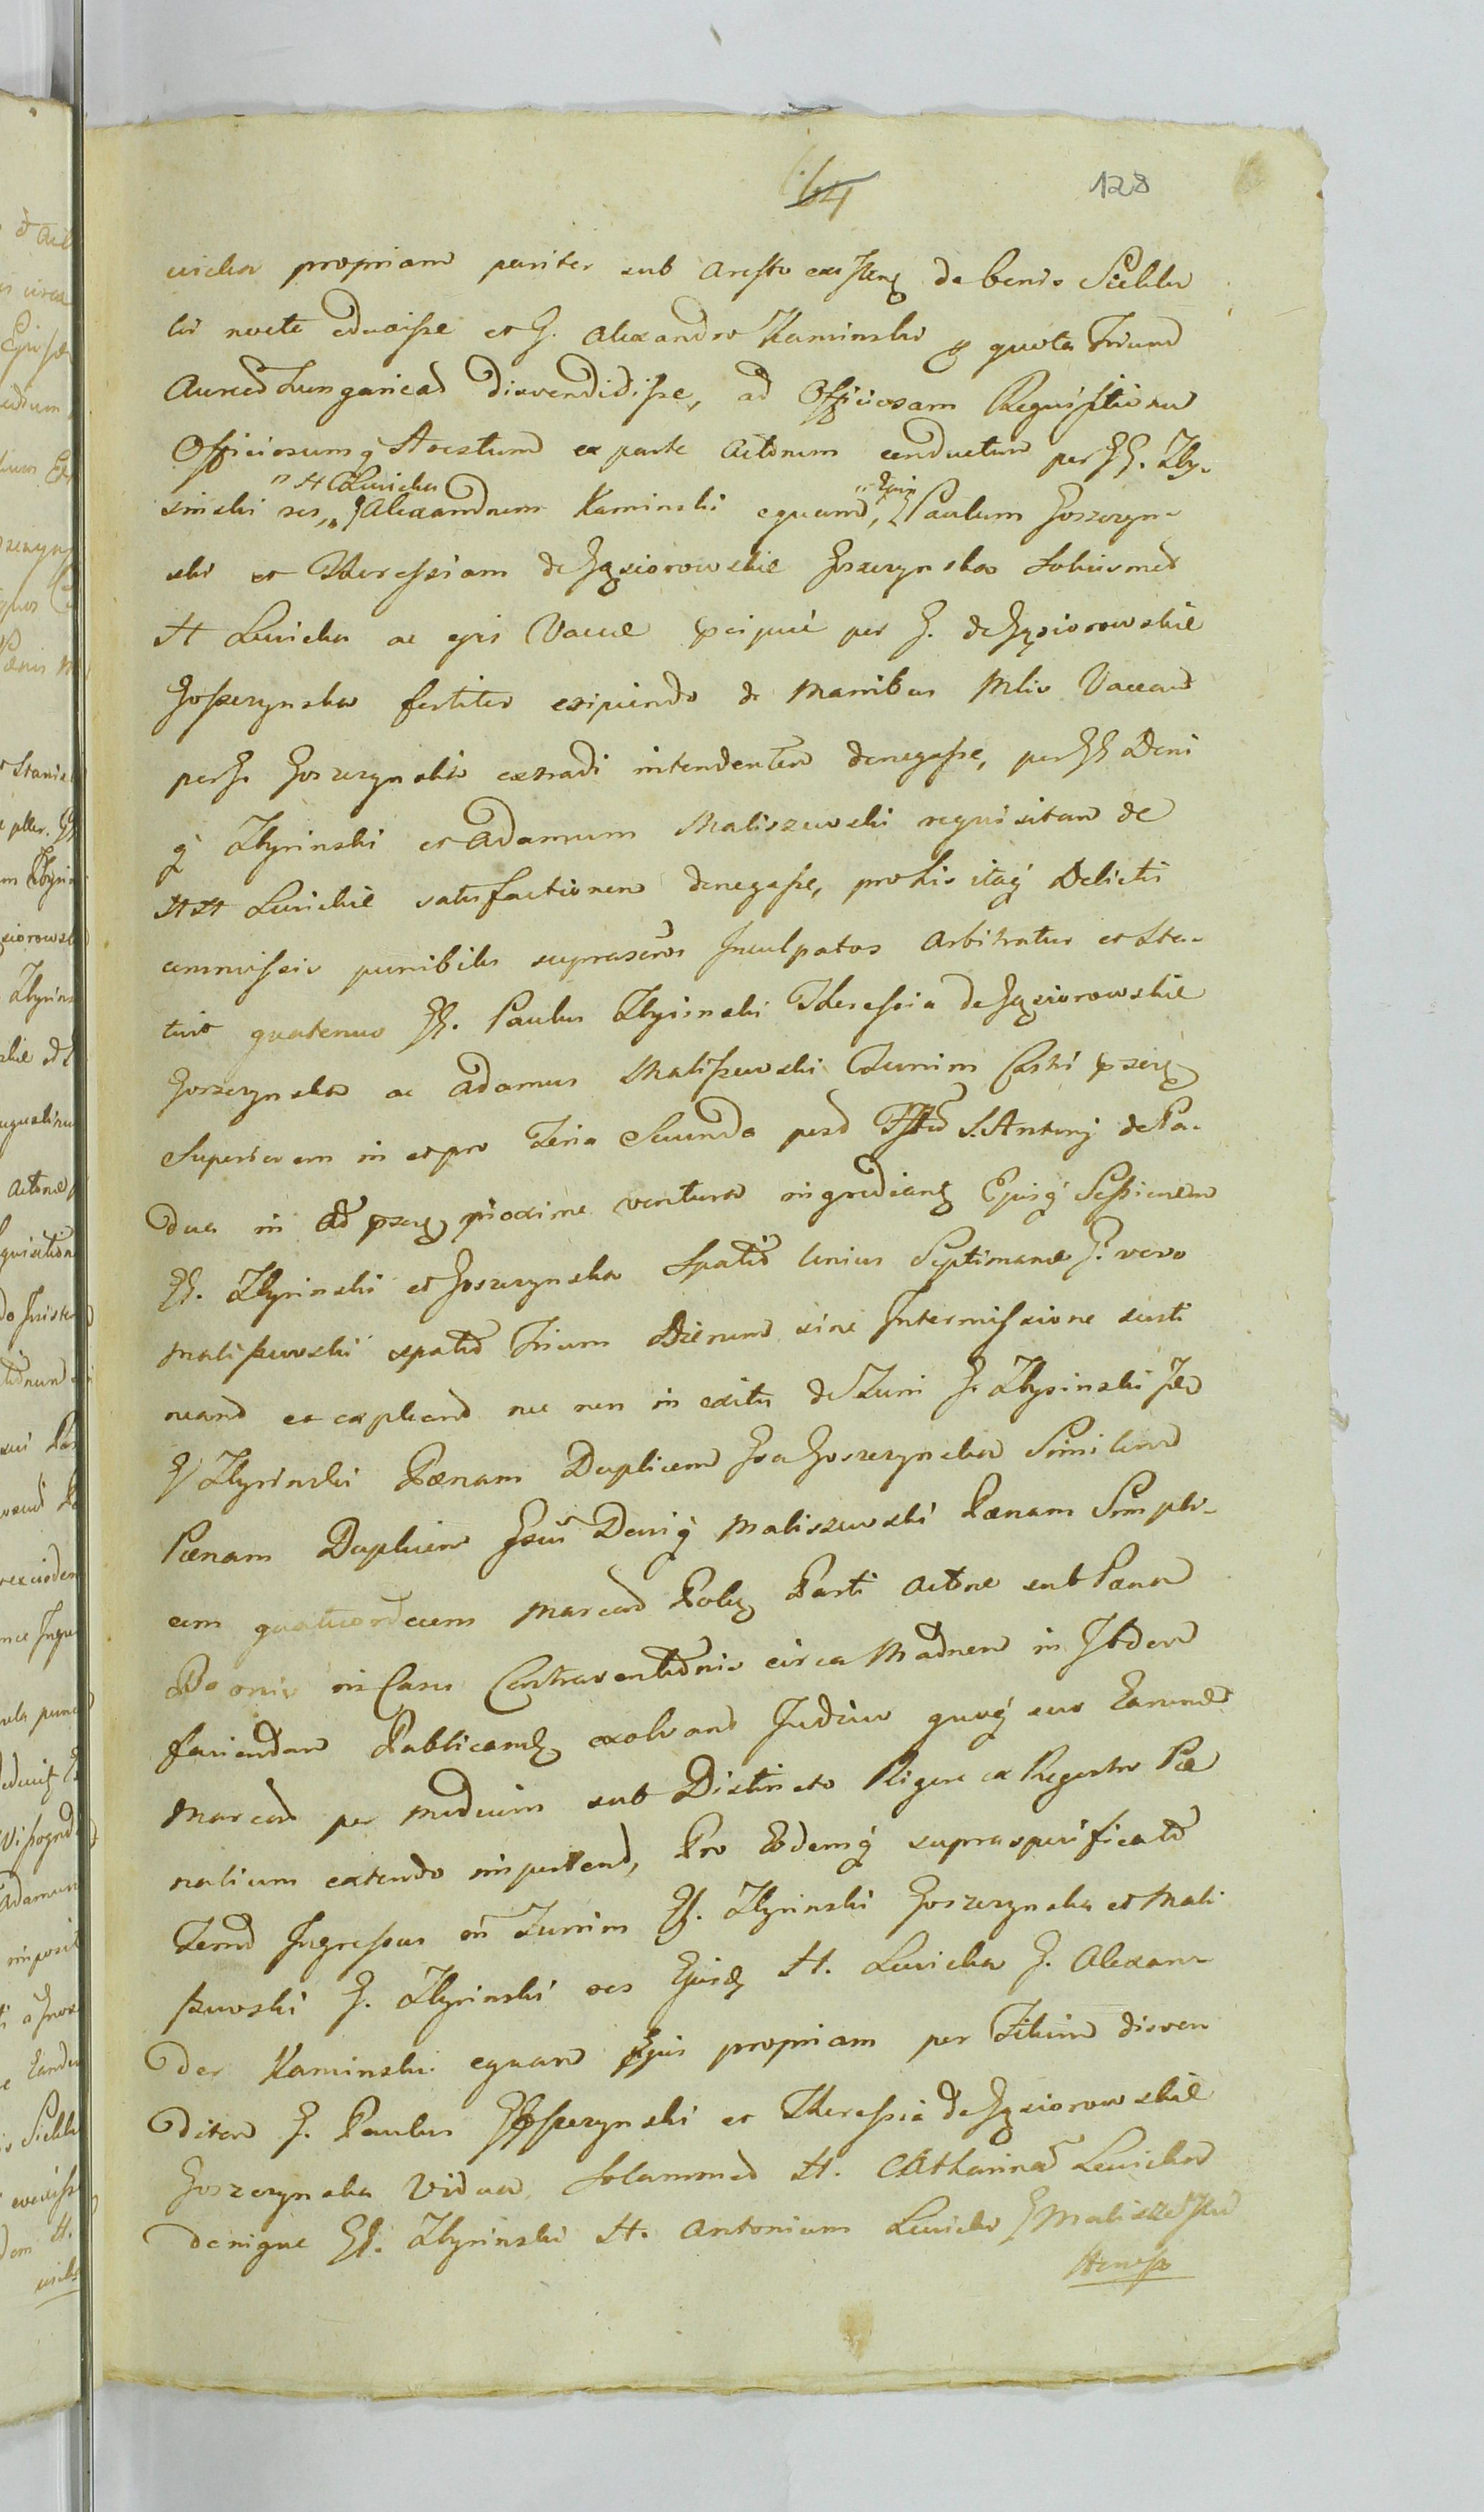 64
128
wicka propriam pariter sub Aresto existen de bonis Siekluk
ki nocte eduxisse et G. Alexandro Kaminski quota Trium
Aureo Hungarical disvendidisse, ad Officiosam Requisitionem
Officiosumq Arestum ex parte Actorum conductum per GG. Zby-
H Lewicka Ejus
sinski res, G Alexandrum Kaminski equam, G Paulum Goszczyn-
ski et Theressiam de Gąsiorowskie Goszczynska
H Lewicka ac ejus Vaccae per G. de Gąsiorowskie
Goszczynska eripiendo de Manibus Mlis Vaccam
per G. Goszczynski extradi intendentem denegasse, per GG Deni
q Zbysinski et Adamum Maliszewski requisitam de
HH Lewickie satisfactionem denegasse, pro his itaq Delictis
commissis punibiles suprascros Inculpatos Arbitratur et Sta-
tuit quatenus GG. Paulus Zbysinski Theressia de Gąsiorowskie
Goszczynska ac Adamus Maliszewski Turrim Castri
Superiorem in et pro Feria Secunda post S. Antonij de Pa-
dua in proxime ventura ingredian Ejusq Sessionem
GG. Zbysinski et Goszczynska Spatio Unius Septimanae G. vero
Maliszewski spatio Trium Dierum sine Intermissione susti
neand et expleand nec non in exitu de Turri G. Zbysinski
G Zbysinski Paenam Duplicem Gsa Goszczynska Similem
Paenam Duplicem Gsus Deniq Maliszewski Paenam Simpli-
cem quatuordecem Marcard Polon Parti Actoreae sub Paena
Bannis in Casu Contraventionis circa Madnem in Ibdem
faciendam Publicand exolvant Judicio quoq suo Earund
Marcard per medium sub Distincto Rigore ex Regestro Pae
nalium extendo impertend, Pro Eodemq supraspecificato
Temp Ingressus in Turrim GG. Zbysinski Goszczynska et Mali
szewski G. Zbysinski res Ejusd H. Lewicka G. Alexan-
der Kaminski equam Ejus propriam per Filium disven
ditam G. Paulus Goszczynski et Theressia de Gąsiorowskie
Goszczynska Vidua H. Catharinae Lewicka
denique GG. Zbysinski H. Antonium Lewicki G Malisze